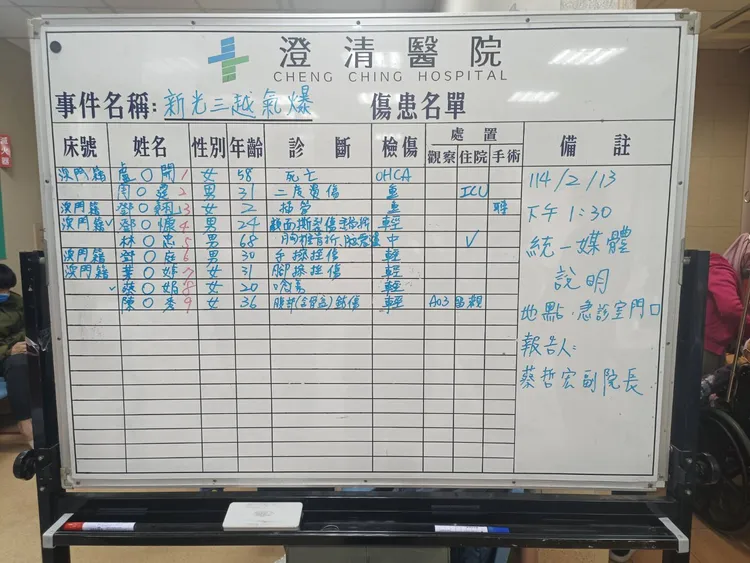 澄清醫院
CHENG CHING HOSPITAL
事件名稱: 新光三越氣爆 傷患名單
床號 姓名 性別 年齡 診斷 檢傷 處置 備註
觀察 住院 手術
澳門籍 盧〇開 1 女 58 死亡 OHCA
周〇 2 男 31 三度燙傷 重 ICU
澳門籍 鄧〇 3 女 2 插管 重
澳門籍 鄧〇 4 男 24 顏面撕裂傷 輕
林〇忠 5 男 68 胸椎骨折 中 V
澳門籍 鄧〇庭 6 男 30 右擦挫傷 輕
澳門籍 葉〇婷 7 女 31 腳擦挫傷 輕
蔡〇娟 8 女 20 輕
陳〇秀 9 女 36 輕 A03 留觀
114/2/13
下午1:30
統一媒體
說明
地點:急診室門口
報告人:
蔡哲宏副院長